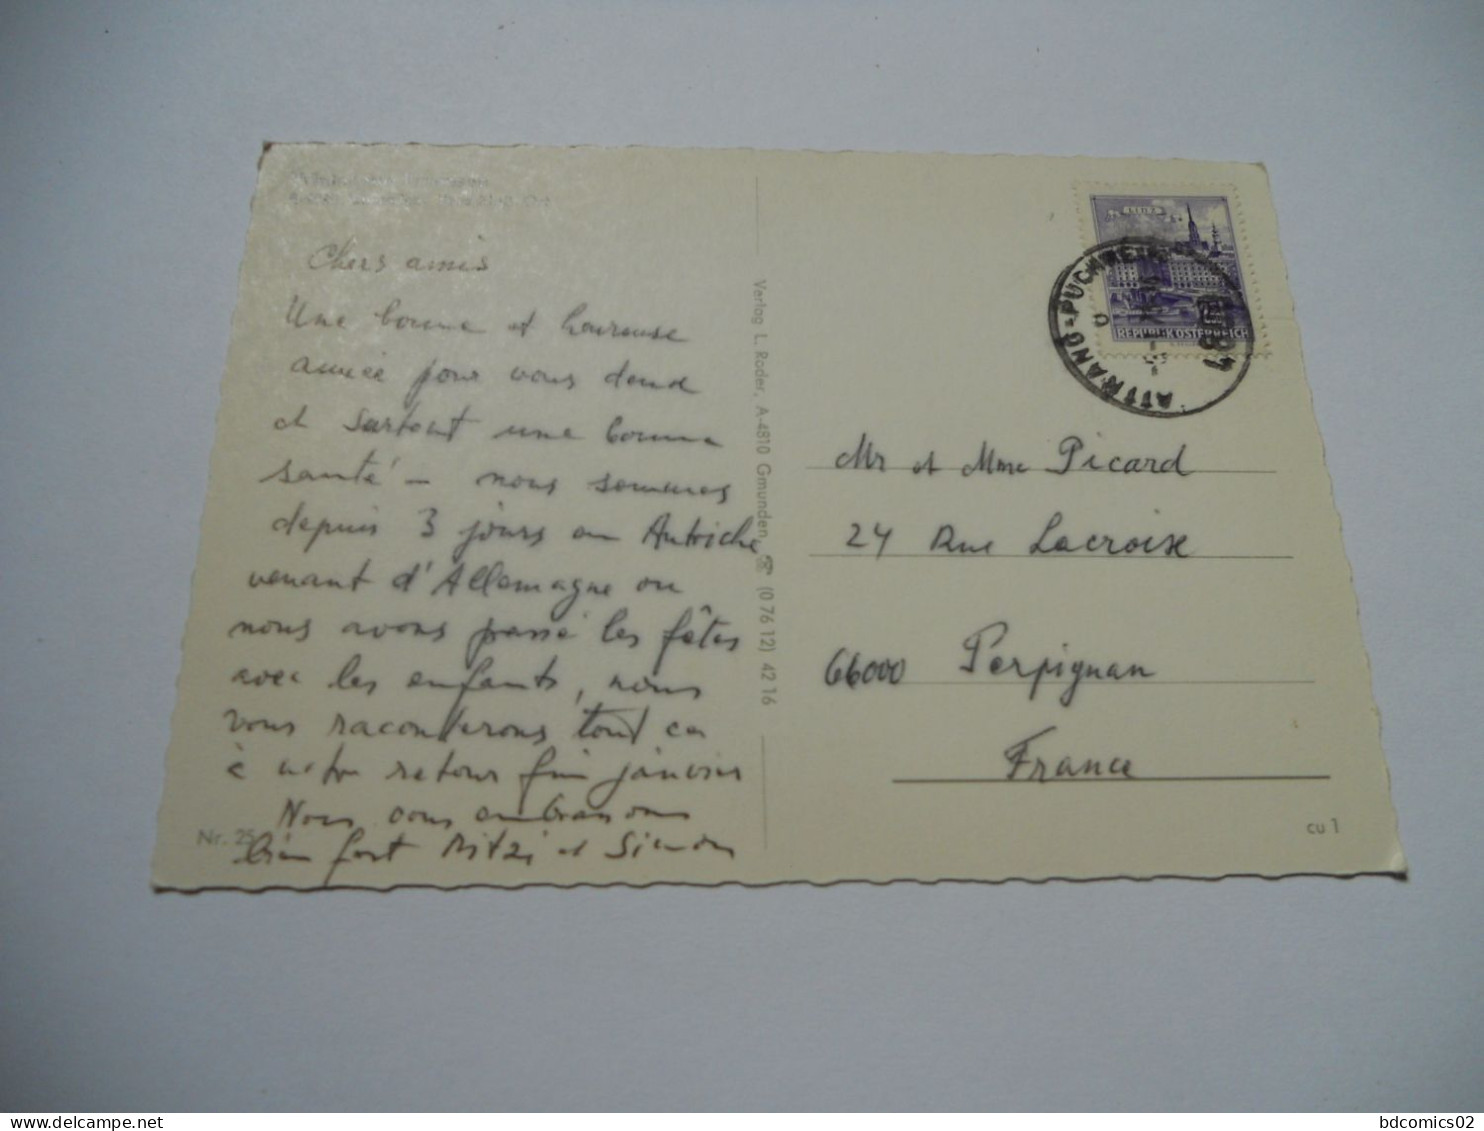 Chers amis
Une bonne et heureuse
année pour vous deux
et surtout une bonne
santé - nous sommes
depuis 3 jours en Autriche
venant d'Allemagne ou
nous avons passé les fêtes
avec les enfants, nous
vous raconterons tout ca
à notre retour fin janvier
Nous vous embrassons
bien fort Mitzi et Simon
Nr. 25
Verlag L. Roder, A-4810 Gmunden, ☏ (0 76 12) 42 16
LINZ
REPUBLIK ÖSTERREICH
ATTNANG-PUCHHEIM
Mr et Mme Picard
24 Rue Lacroix
66000 Perpignan
France
cu 1
bdcomics02